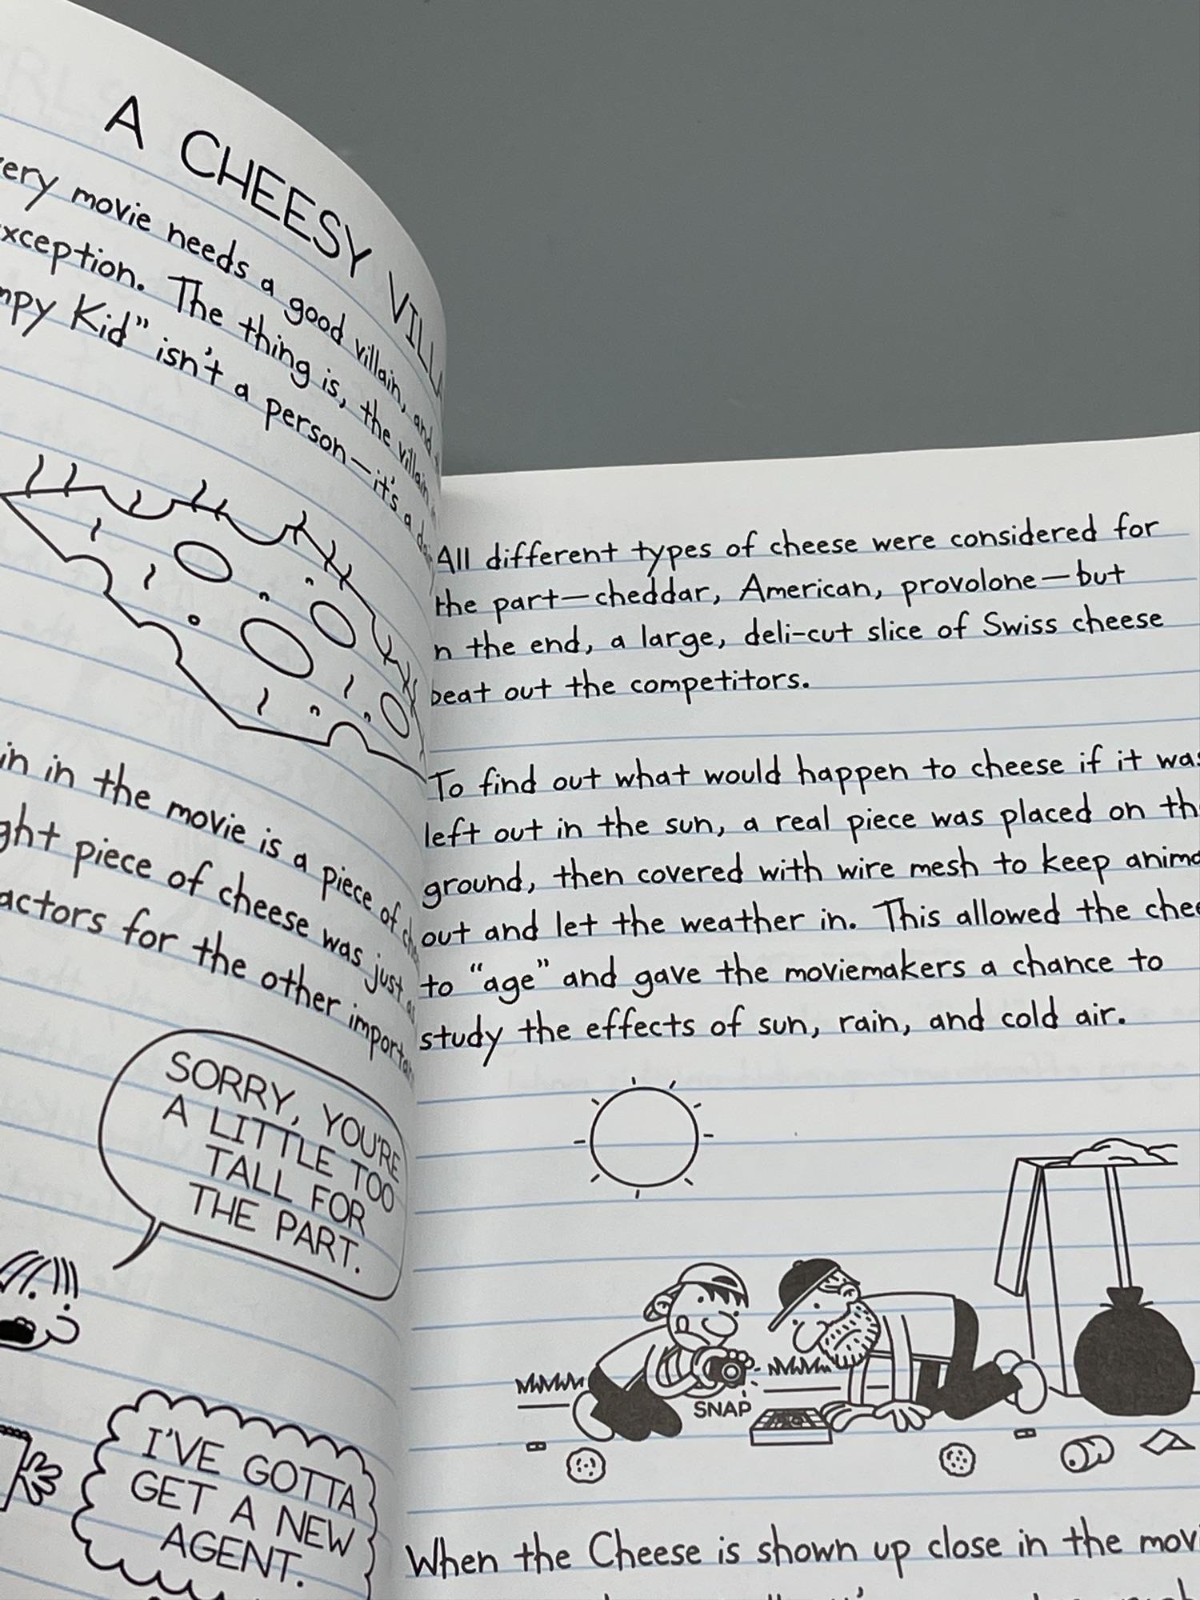 A CHEESY
ery movie needs a good villain, and
xception. The thing is, the villain
mpy Kid" isn't a person—it's a
in in the movie is a piece of
ght piece of cheese was just
actors for the other
SORRY, YOU'RE
A LITTLE TOO
TALL FOR
THE PART.
I'VE GOTTA
GET A NEW
AGENT.
All different types of cheese were considered for
the part—cheddar, American, provolone—but
n the end, a large, deli-cut slice of Swiss cheese
beat out the competitors.
To find out what would happen to cheese if it was
left out in the sun, a real piece was placed on th
ground, then covered with wire mesh to keep anima
out and let the weather in. This allowed the chee
to "age" and gave the moviemakers a chance to
study the effects of sun, rain, and cold air.
SNAP
When the Cheese is shown up close in the movi